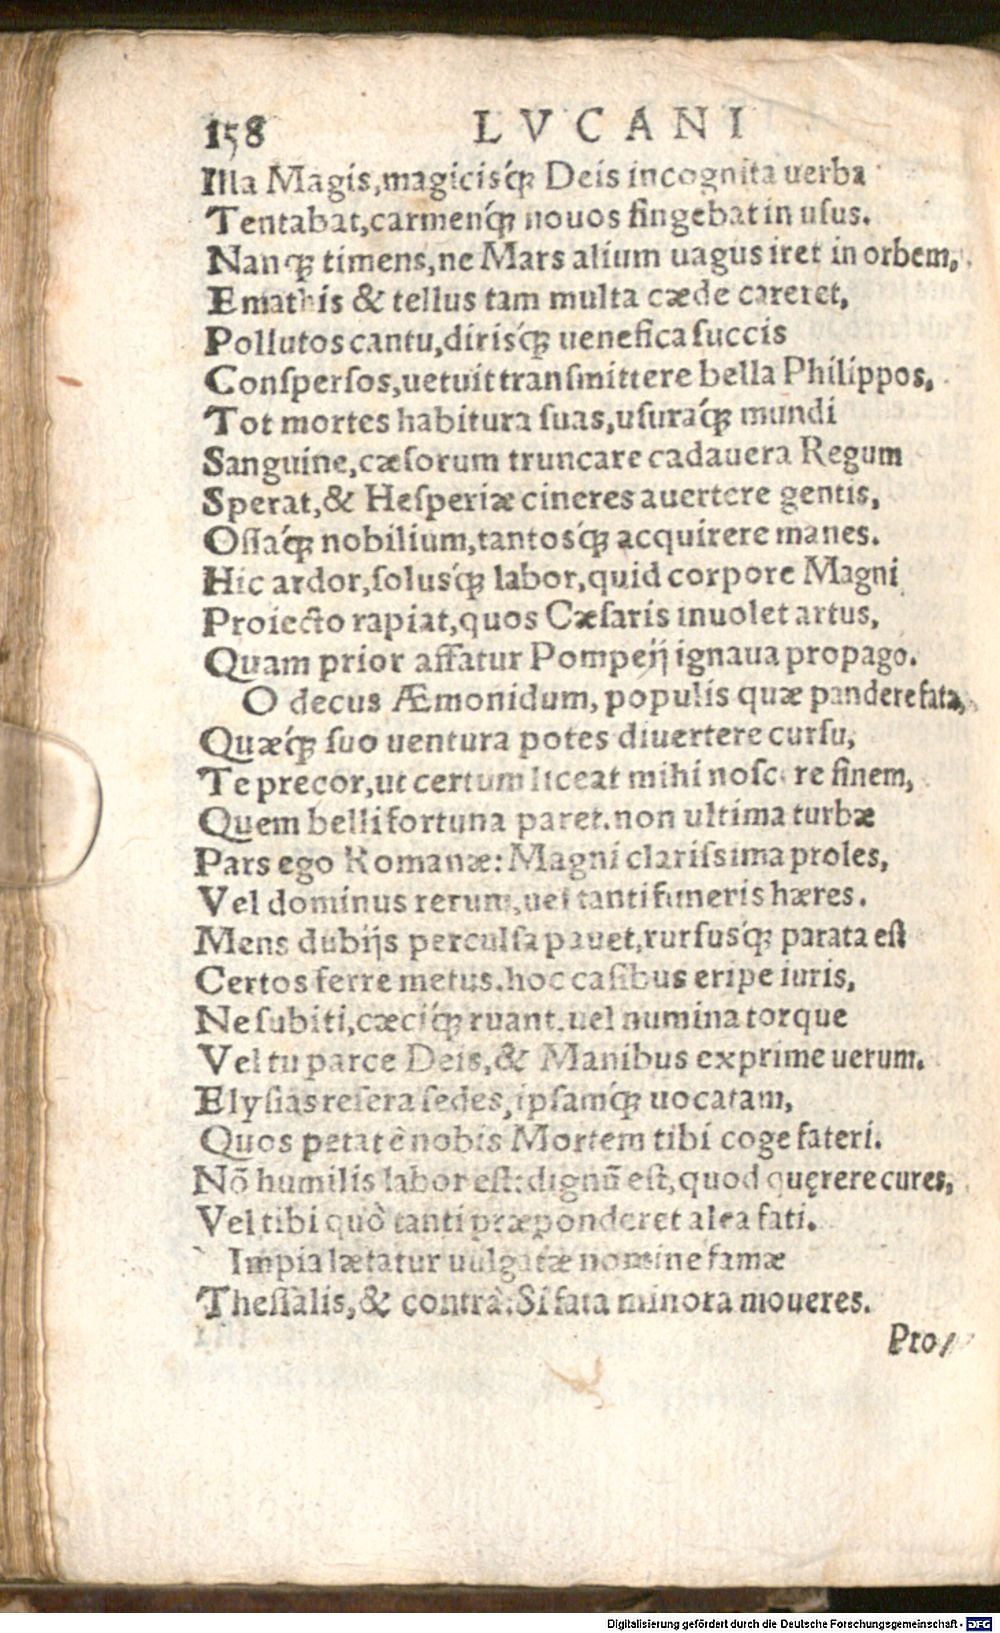 158 LVCANI
Illa Magis, magicisq́ꝫ Deis incognita uerba
Tentabat, carmenq́ꝫ nouos fingebat in uſus.
Nanqꝫ timens, ne Mars alium uagus iret in orbem,
Emathis & tellus tam multa cæde careret,
Pollutos cantu, dirisq́ꝫ uenefica ſuccis
Conſperſos, uetuit tranſmittere bella Philippos,
Tot mortes habitura ſuas, uſuraq́ꝫ mundi
Sanguine, cæſorum truncare cadauera Regum
Sperat, & Heſperiæ cineres auertere gentis,
Oſſaq́ꝫ nobilium, tantosq́ꝫ acquirere manes.
Hic ardor, ſolusq́ꝫ labor, quid corpore Magni
Proiecto rapiat, quos Cæſaris inuolet artus,
Quam prior affatur Pompeij ignaua propago.
O decus Æmonidum, populis quæ pandere fata,
Quæq́ꝫ ſuo uentura potes diuertere curſu,
Te precor, ut certum liceat mihi noſcere finem,
Quem belli fortuna paret. non ultima turbæ
Pars ego Romanæ: Magni clariſsima proles,
Vel dominus rerum, uel tanti funeris hæres.
Mens dubijs perculſa pauet, rurſusq́ꝫ parata eſt
Certos ferre metus. hoc caſibus eripe iuris,
Ne ſubiti, cæciq́ꝫ ruant. uel numina torque
Vel tu parce Deis, & Manibus exprime uerum.
Elyſias reſera ſedes, ipſamq́ꝫ uocatam,
Quos petat è nobis Mortem tibi coge fateri.
Nõ humilis labor eſt: dignũ eſt, quod quęrere cures,
Vel tibi quò tanti præponderet alea fati.
Impia lætatur uulgatæ nomine famæ
Theſſalis, & contrà: Si fata minora moueres.
Pro/
Digitalisierung gefördert durch die Deutsche Forschungsgemeinschaft - DFG